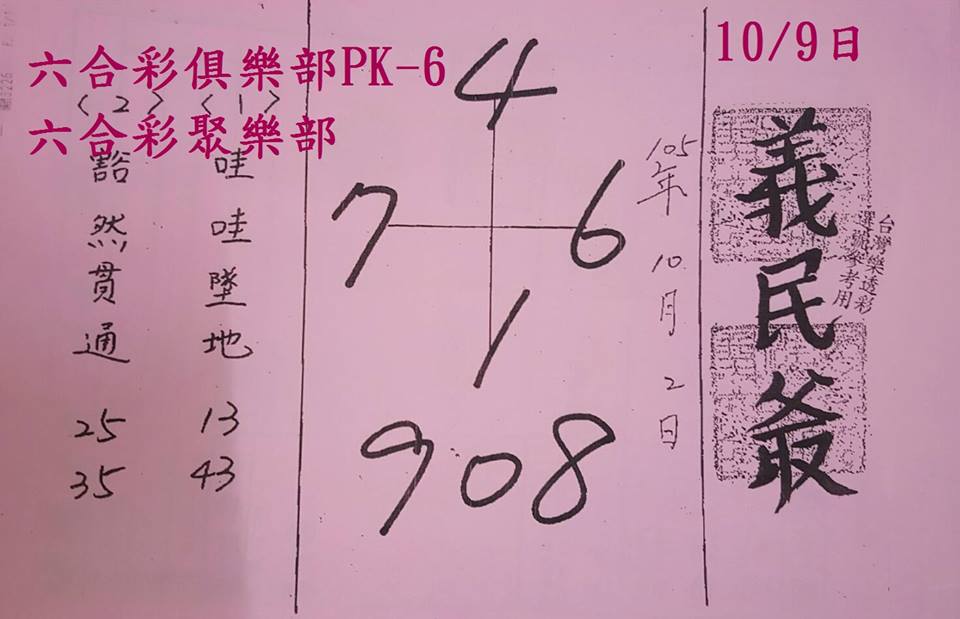 六合彩俱樂部PK-6
六合彩聚樂部
10/9日
義民爺
台灣樂透彩
選號參考用
105年10月2日
4
7 6
1
908
<1>
哇哇墜地
13
43
<2>
豁然貫通
25
35